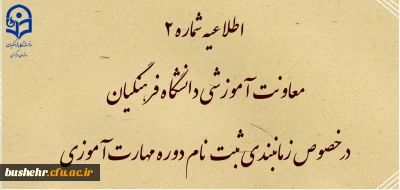 اطلاعیه شماره ۲
معاونت آموزشی دانشگاه فرهنگیان
در خصوص زمانبندی ثبت نام دوره مهارت آموزی
bushehr.cfu.ac.ir